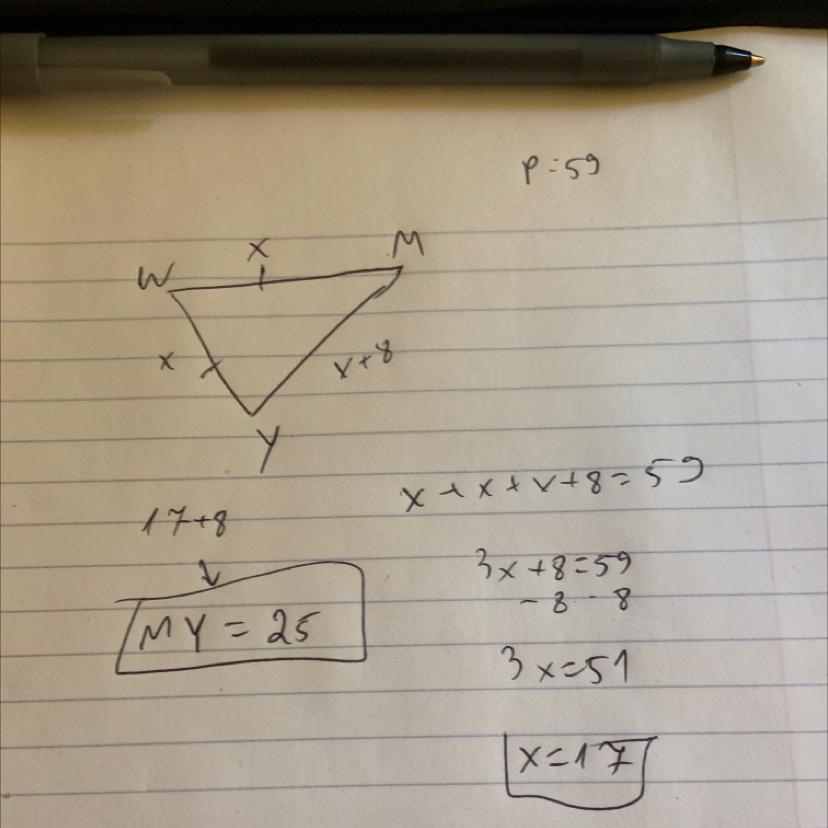 P=59
x
M
W
x
x+8
Y
x+x+x+8=59
17+8
3x+8=59
-8 -8
MY=25
3x=51
x=17